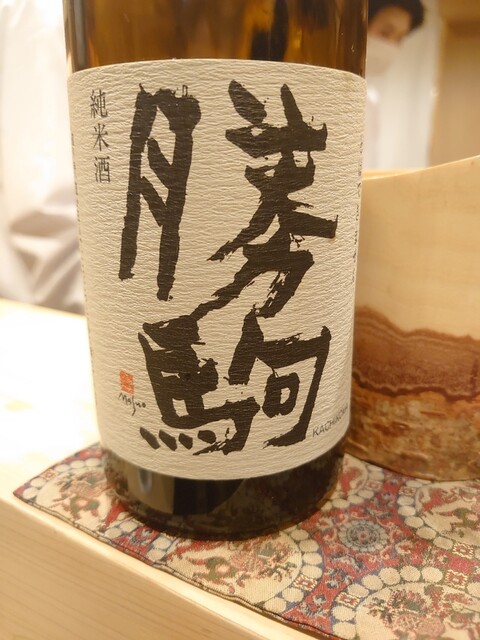 勝駒
純米酒
masuo